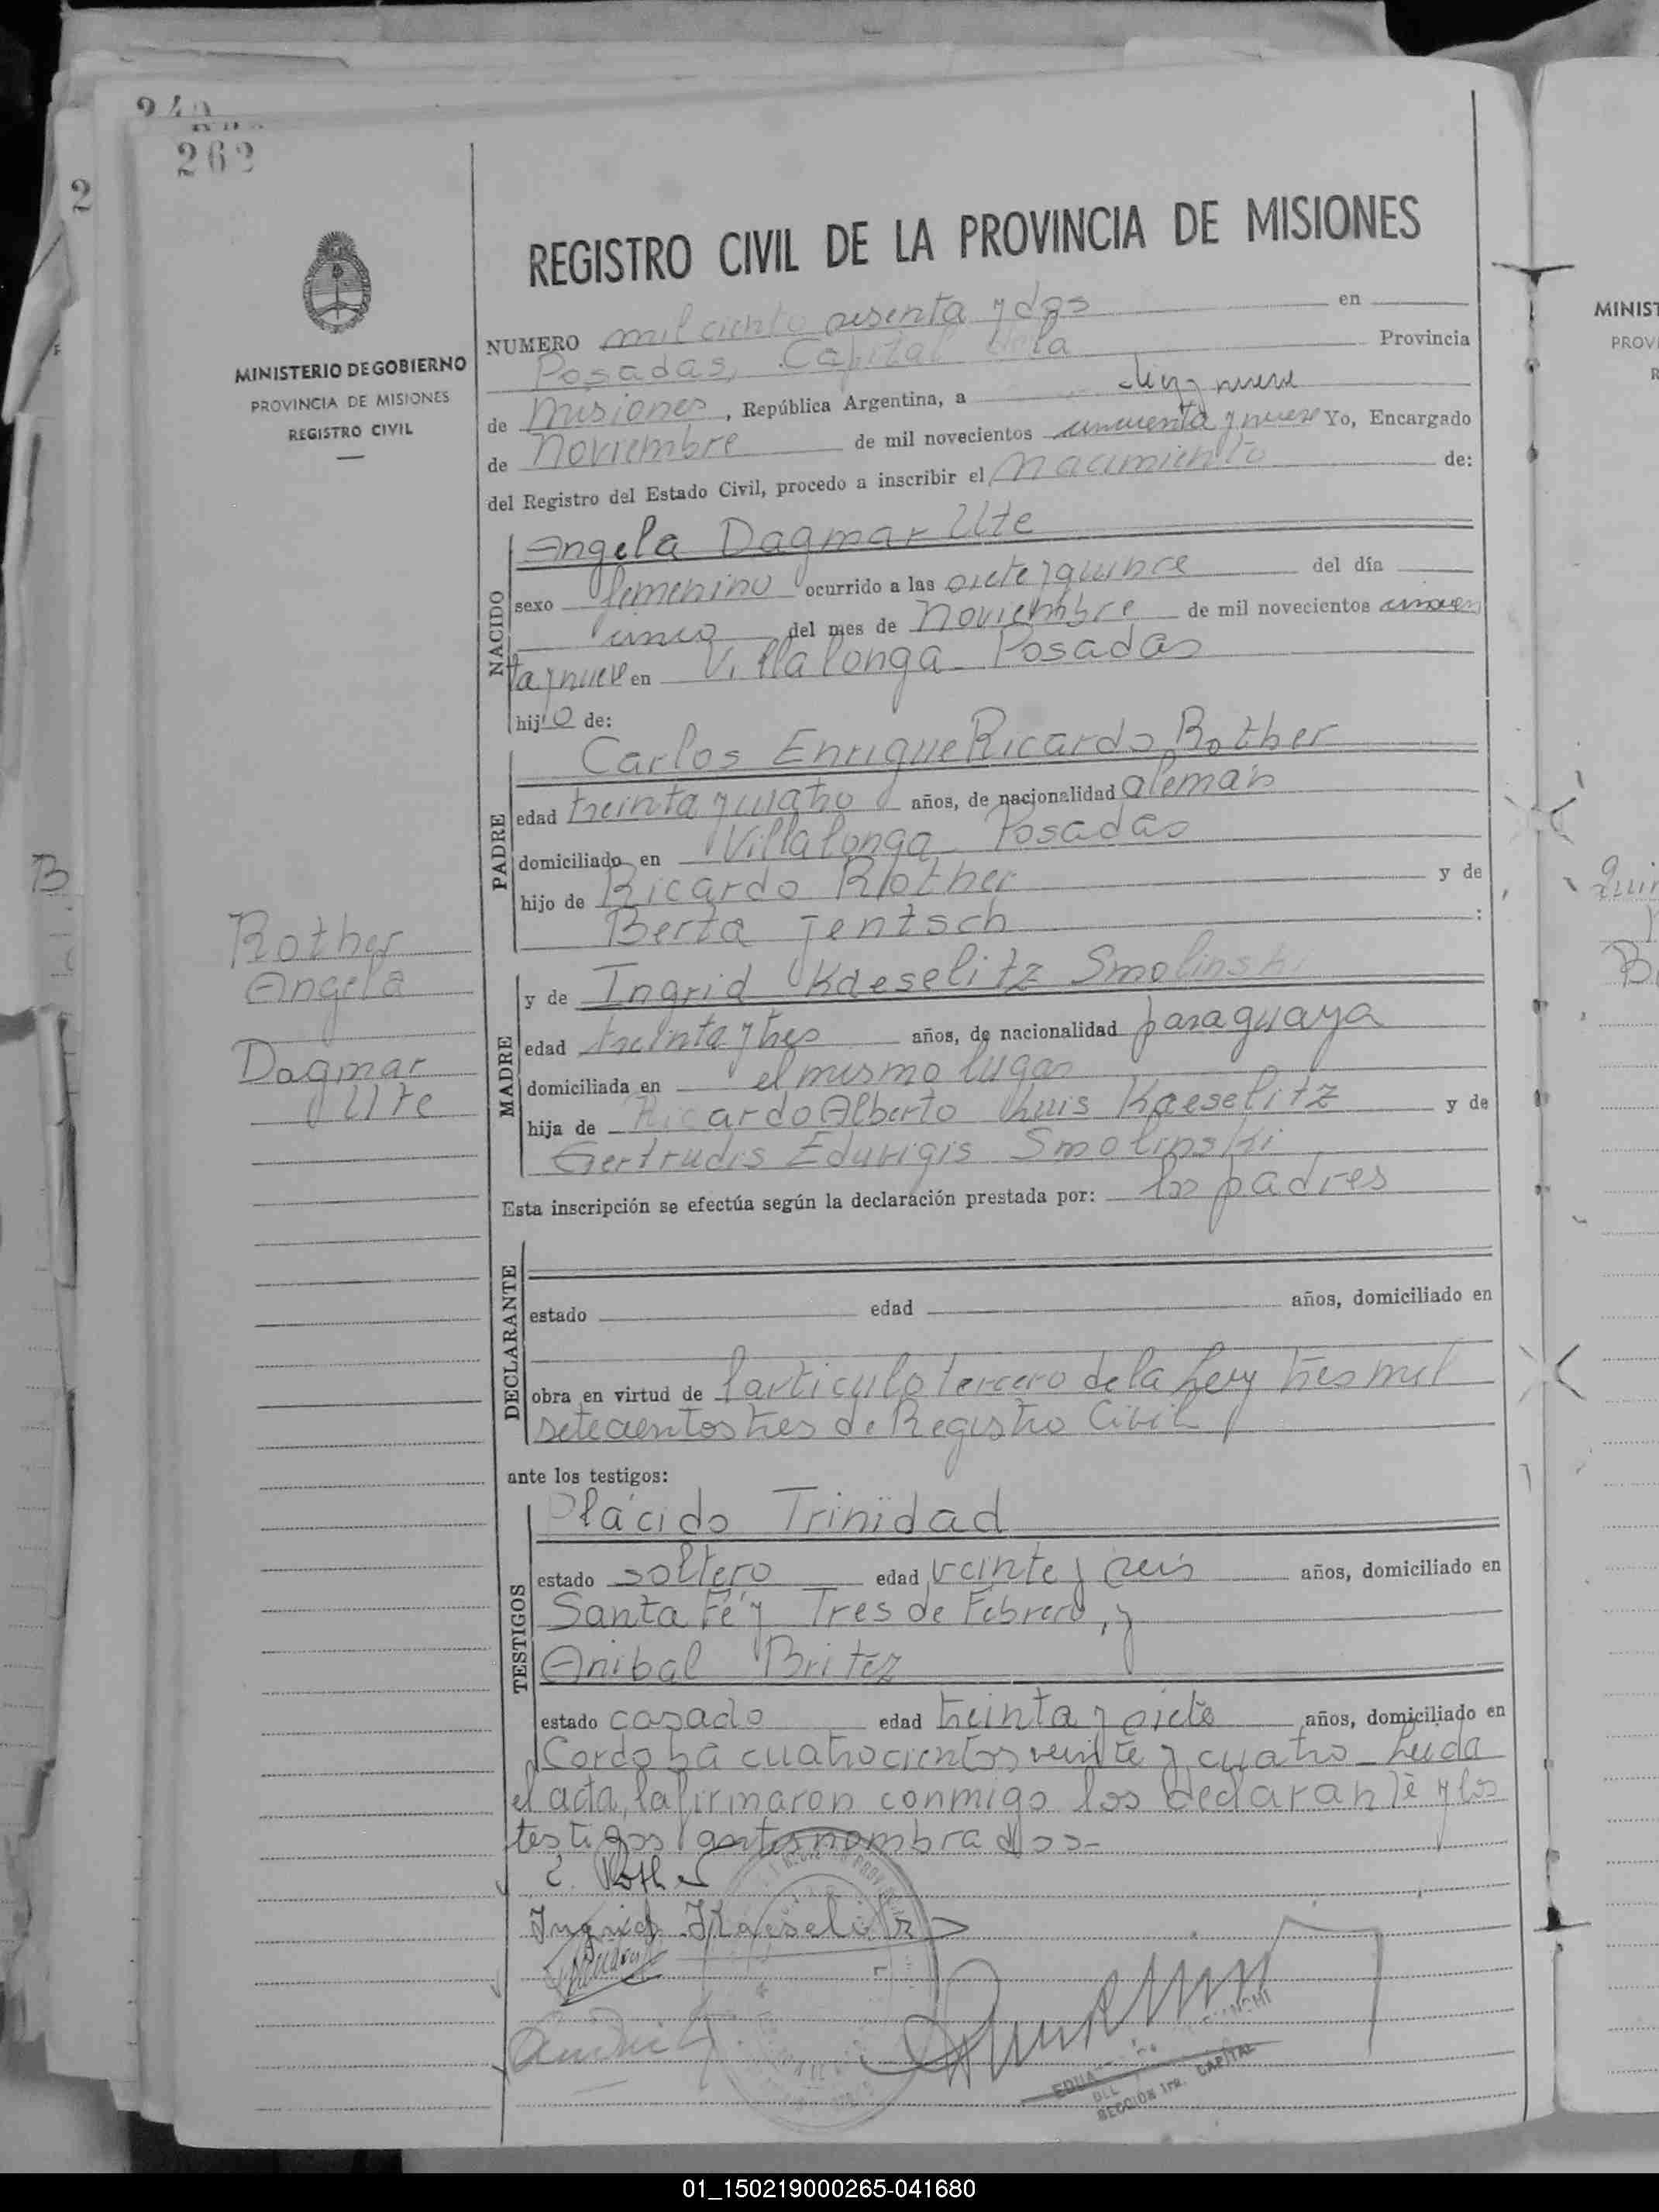 262
2
MINISTERIO DE GOBIERNO
PROVINCIA DE MISIONES
REGISTRO CIVIL
REGISTRO CIVIL DE LA PROVINCIA DE MISIONES
NUMERO mil ciento sesenta y dos en
Posadas, Capital de la Provincia
de Misiones, República Argentina, a diez y nueve
de Noviembre de mil novecientos cincuenta y nueve Yo, Encargado
del Registro del Estado Civil, procedo a inscribir el Nacimiento de:
NACIDO
Angela Dagmar Ute
sexo femenino ocurrido a las siete y quince del día
cinco del mes de Noviembre de mil novecientos cincuen
ta y nueve en Villalonga Posadas
hijo de:
PADRE
Carlos Enrique Ricardo Rother
edad treinta y cuatro años, de nacionalidad alemán
domiciliado en Villalonga Posadas
hijo de Ricardo Rother y de
Berta Jentsch :
MADRE
y de Ingrid Kaeselitz Smolinski
edad treinta y tres años, de nacionalidad paraguaya
domiciliada en el mismo lugar
hija de Ricardo Alberto Luis Kaeselitz y de
Gertrudis Eduvigis Smolinski
Esta inscripción se efectúa según la declaración prestada por: los padres
DECLARANTE
estado edad años, domiciliado en
obra en virtud de l articulo tercero de la Ley tres mil
setecientos tres de Registro Civil
ante los testigos:
TESTIGOS
Plácido Trinidad
estado soltero edad veinte y seis años, domiciliado en
Santa Fé y Tres de Febrero, y
Anibal Britez
estado casado edad treinta y siete años, domiciliado en
Cordoba cuatrocientos veinte y cuatro Leida
el acta, la firmaron conmigo los declarante y los
testigos antes nombrados-
C. Rother
Ingrid Kaeselitz
SECCION 1ra. CAPITAL
Rother
Angela
Dagmar
Ute
B
MINIST
PROV
R
01_150219000265-041680